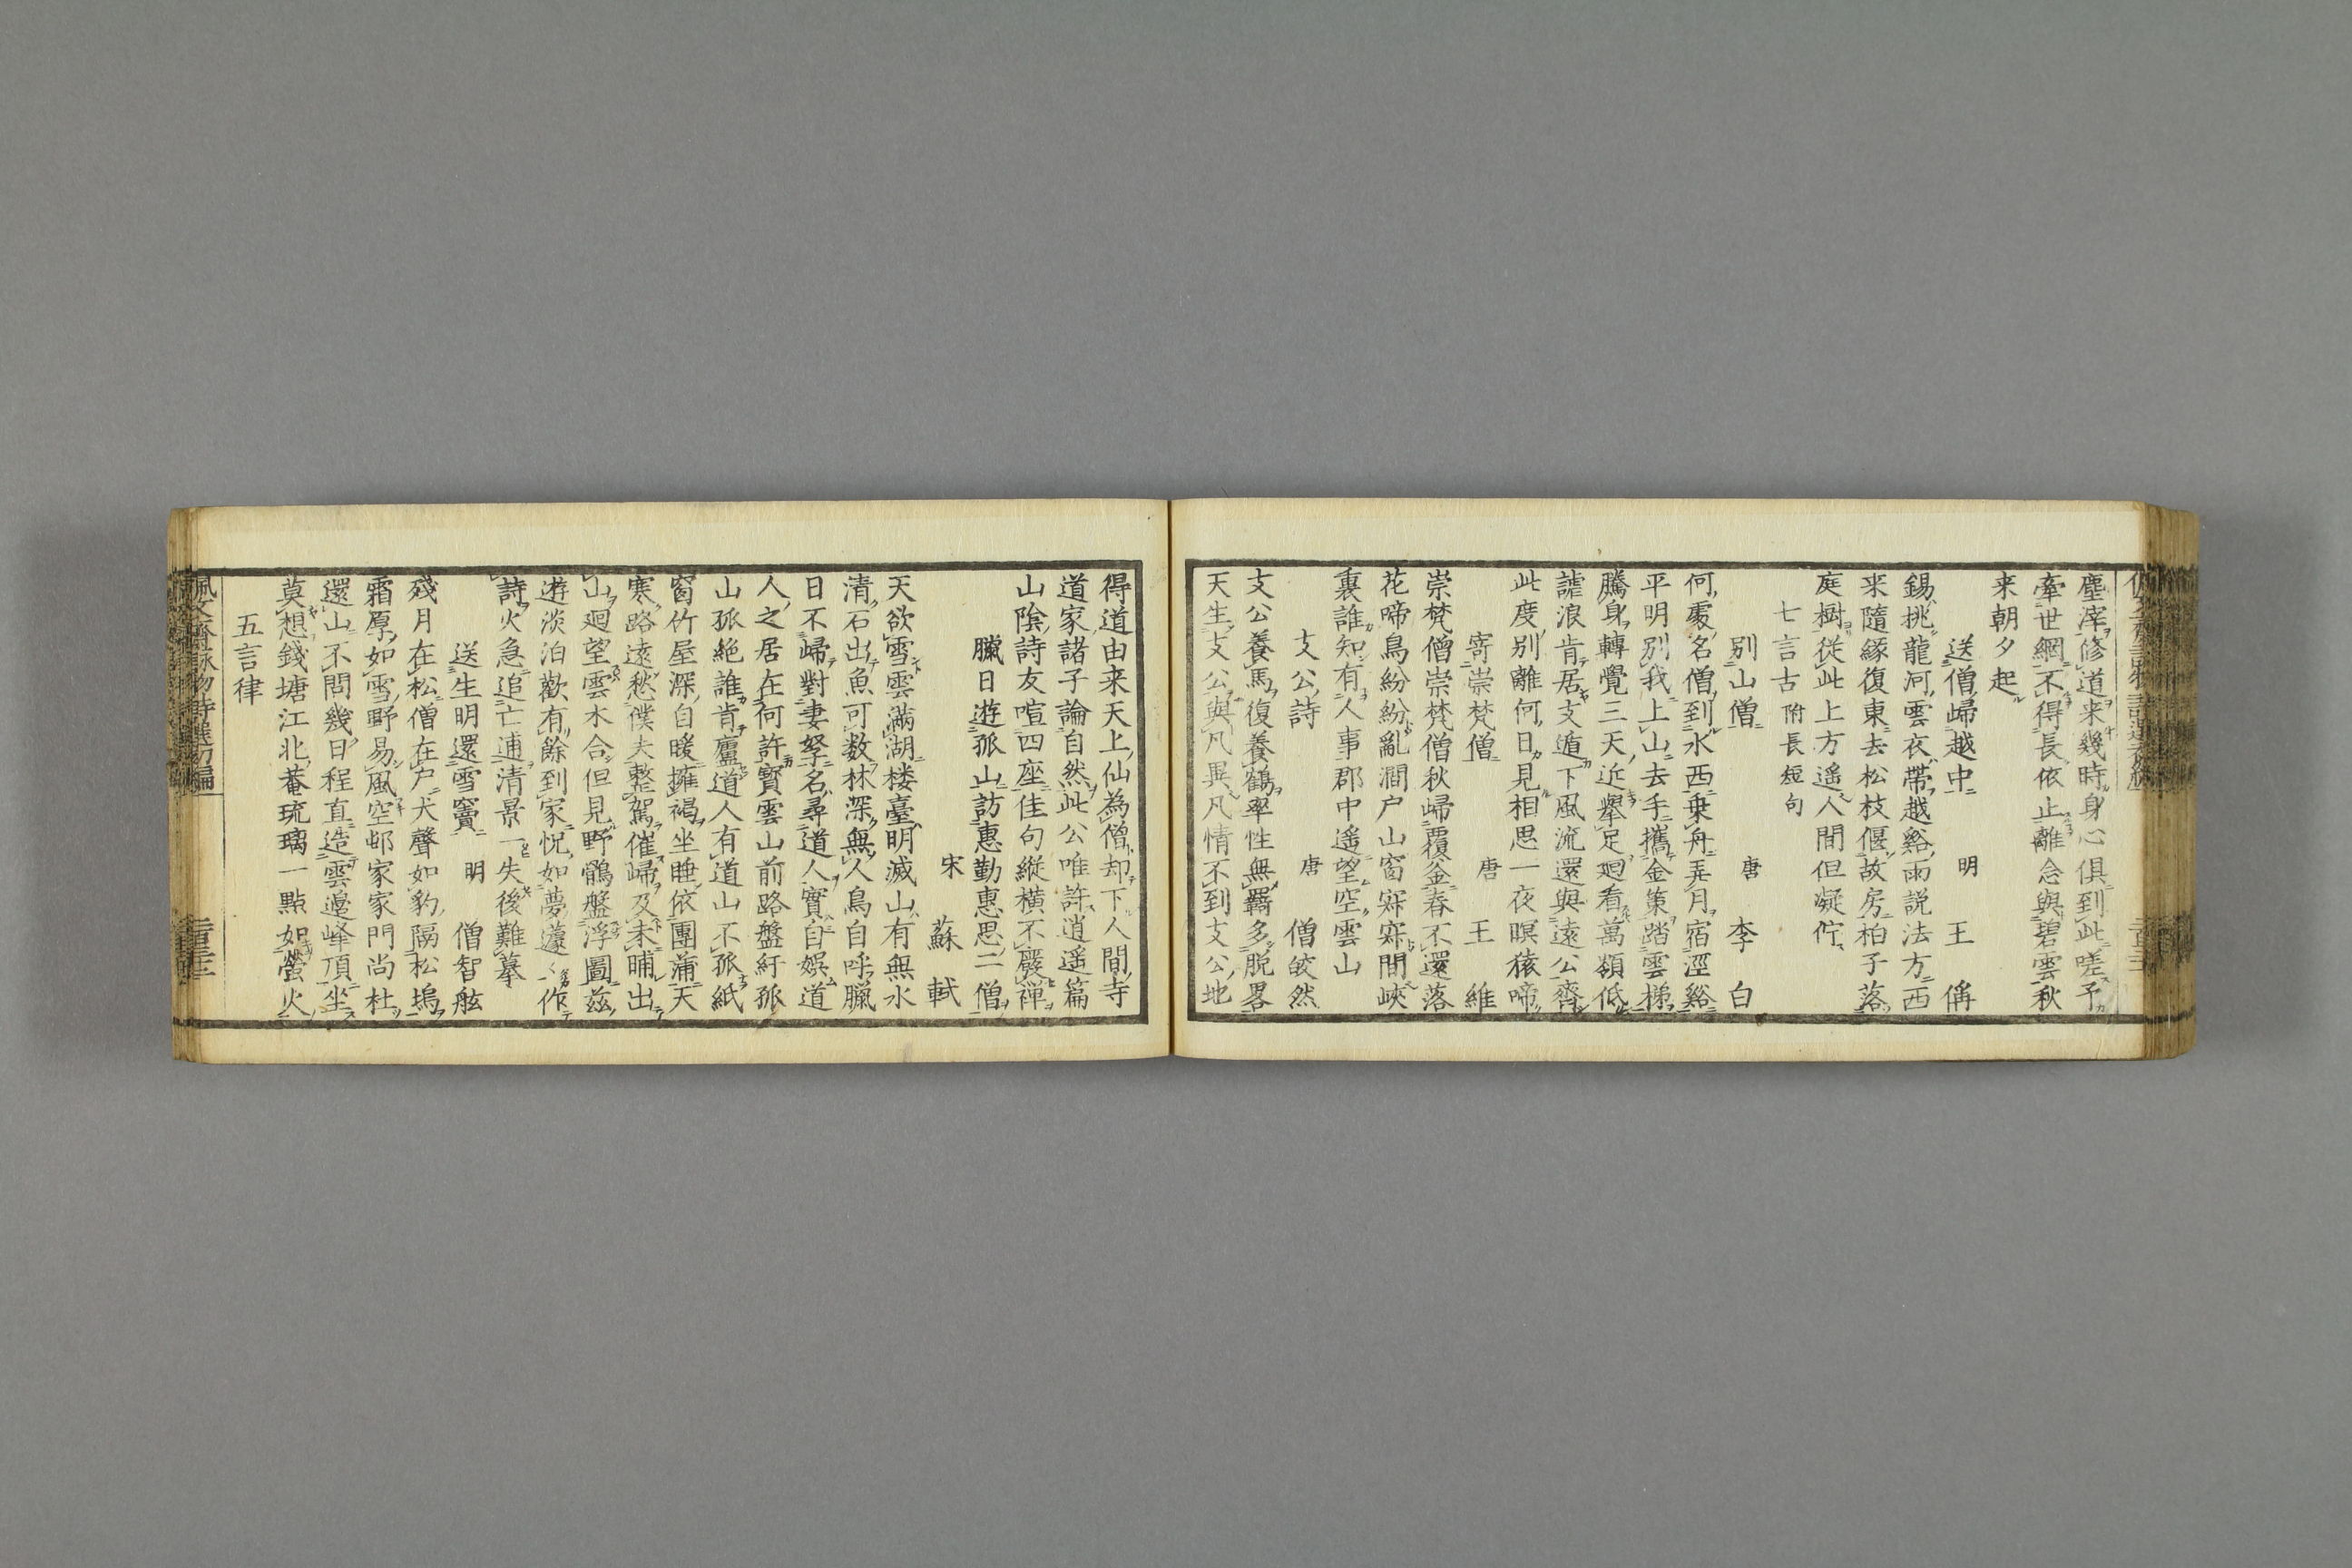 塵滓修道来幾時身心俱到此嗟予
牽世網不得長依止離念與碧雲秋
来朝夕起
送僧歸越中 明 王 偁
錫挑龍河雲衣帶越谿雨説法方西
来隨緣復東去松枝偃故房柏子落
庭樹從此上方遙人間但凝佇
七言古附長短句
別山僧 唐 李 白
何處名僧到水西乗舟弄月宿涇谿
平明別我上山去手攜金策踏雲梯
騰身轉覺三天近擧足廻看萬嶺低
謔浪肯居支遁下風流還與遠公齊
此度別離何日見相思一夜暝猿啼
寄崇梵僧 唐 王 維
崇梵僧崇梵僧秋歸覆釜春不還落
花啼鳥紛紛亂澗戸山窗寂寂間峽
裏誰知有人事郡中遙望空雲山
支公詩 唐 僧皎然
支公養馬復養鶴率性無羈多脱畧
天生支公與凡異凡情不到支公地
得道由来天上仙為僧却下人間寺
道家諸子論自然此公唯許逍遥篇
山陰詩友喧四座佳句縱横不廢禪
臘日遊孤山訪惠勤惠思二僧
宋 蘇 軾
天欲雪雲滿湖楼臺明滅山有無水
清石出魚可数林深無人鳥自呼臘
日不歸對妻孥名尋道人實自娯道
人之居在何許寳雲山前路盤紆孤
山孤絶誰肯廬道人有道山不孤紙
窗竹屋深自暖擁褐坐睡依團蒲天
寒路遠愁僕夫整駕催歸及未晡出
山廻望雲木合但見野鶻盤浮圖茲
遊淡泊歡有餘到家怳如夢蘧〻作
詩火急追亡逋清景一失後難摹
送生明還雪竇 明 僧智舷
殘月在松僧在戸犬聲如豹隔松塢
霜原如雪野易風空邨家家門尚杜
還山不問幾日程直造雲邊峰頂坐
莫想錢塘江北菴琉璃一點如螢火
五言律
佩文齋詠物詩選初編